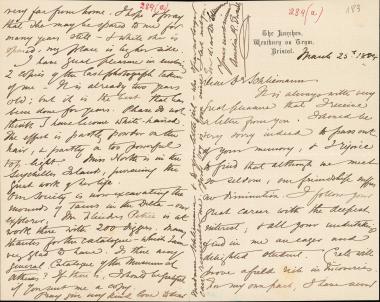 284(a)
183
The Larches,
Westbury on Trym,
Bristol.
March 25th 1884
Dear Dr Schliemann
It is always with very
great pleasure that I receive
a letter from you. I should be
very sorry indeed to pass out
of your memory, & I rejoice
to find that although we meet
so seldom, our friendship suffers
no diminution. I follow your
great career with the deepest
interest, & all your
find in me an eager and
delighted student. Crete will
prove a field rich in discoveries.
For my own part, I have been
284(a)
very far from home. I hope & pray
that she may be spared to me for
many years still - & while she is
spared, my place is by her side.
I have great pleasure in
2 copies of the last photograph taken
of me. It is already two years
old; but it is the that has
been done for years. Please do not
think I have become white-haired
the effect is partly powder on the
hair, & partly a too powerful
top light. Miss North is in the
Seychelles Islands, pursuing the
great work of her life.
Our Society is now excavating the
mounds of in the Delta - our
explorer, Mr Flinders Petrie is at
work there with 200 diggers. Many
thanks for the catalogue - which I am
very glad to have. Is there any
general Catalogue of the Museum at
Athens? If there is, I should be grateful
if you sent me a copy.
Pray give my kind love to